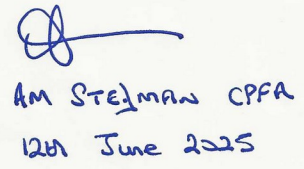 AM STEJMAN CPFA
12th June 2025